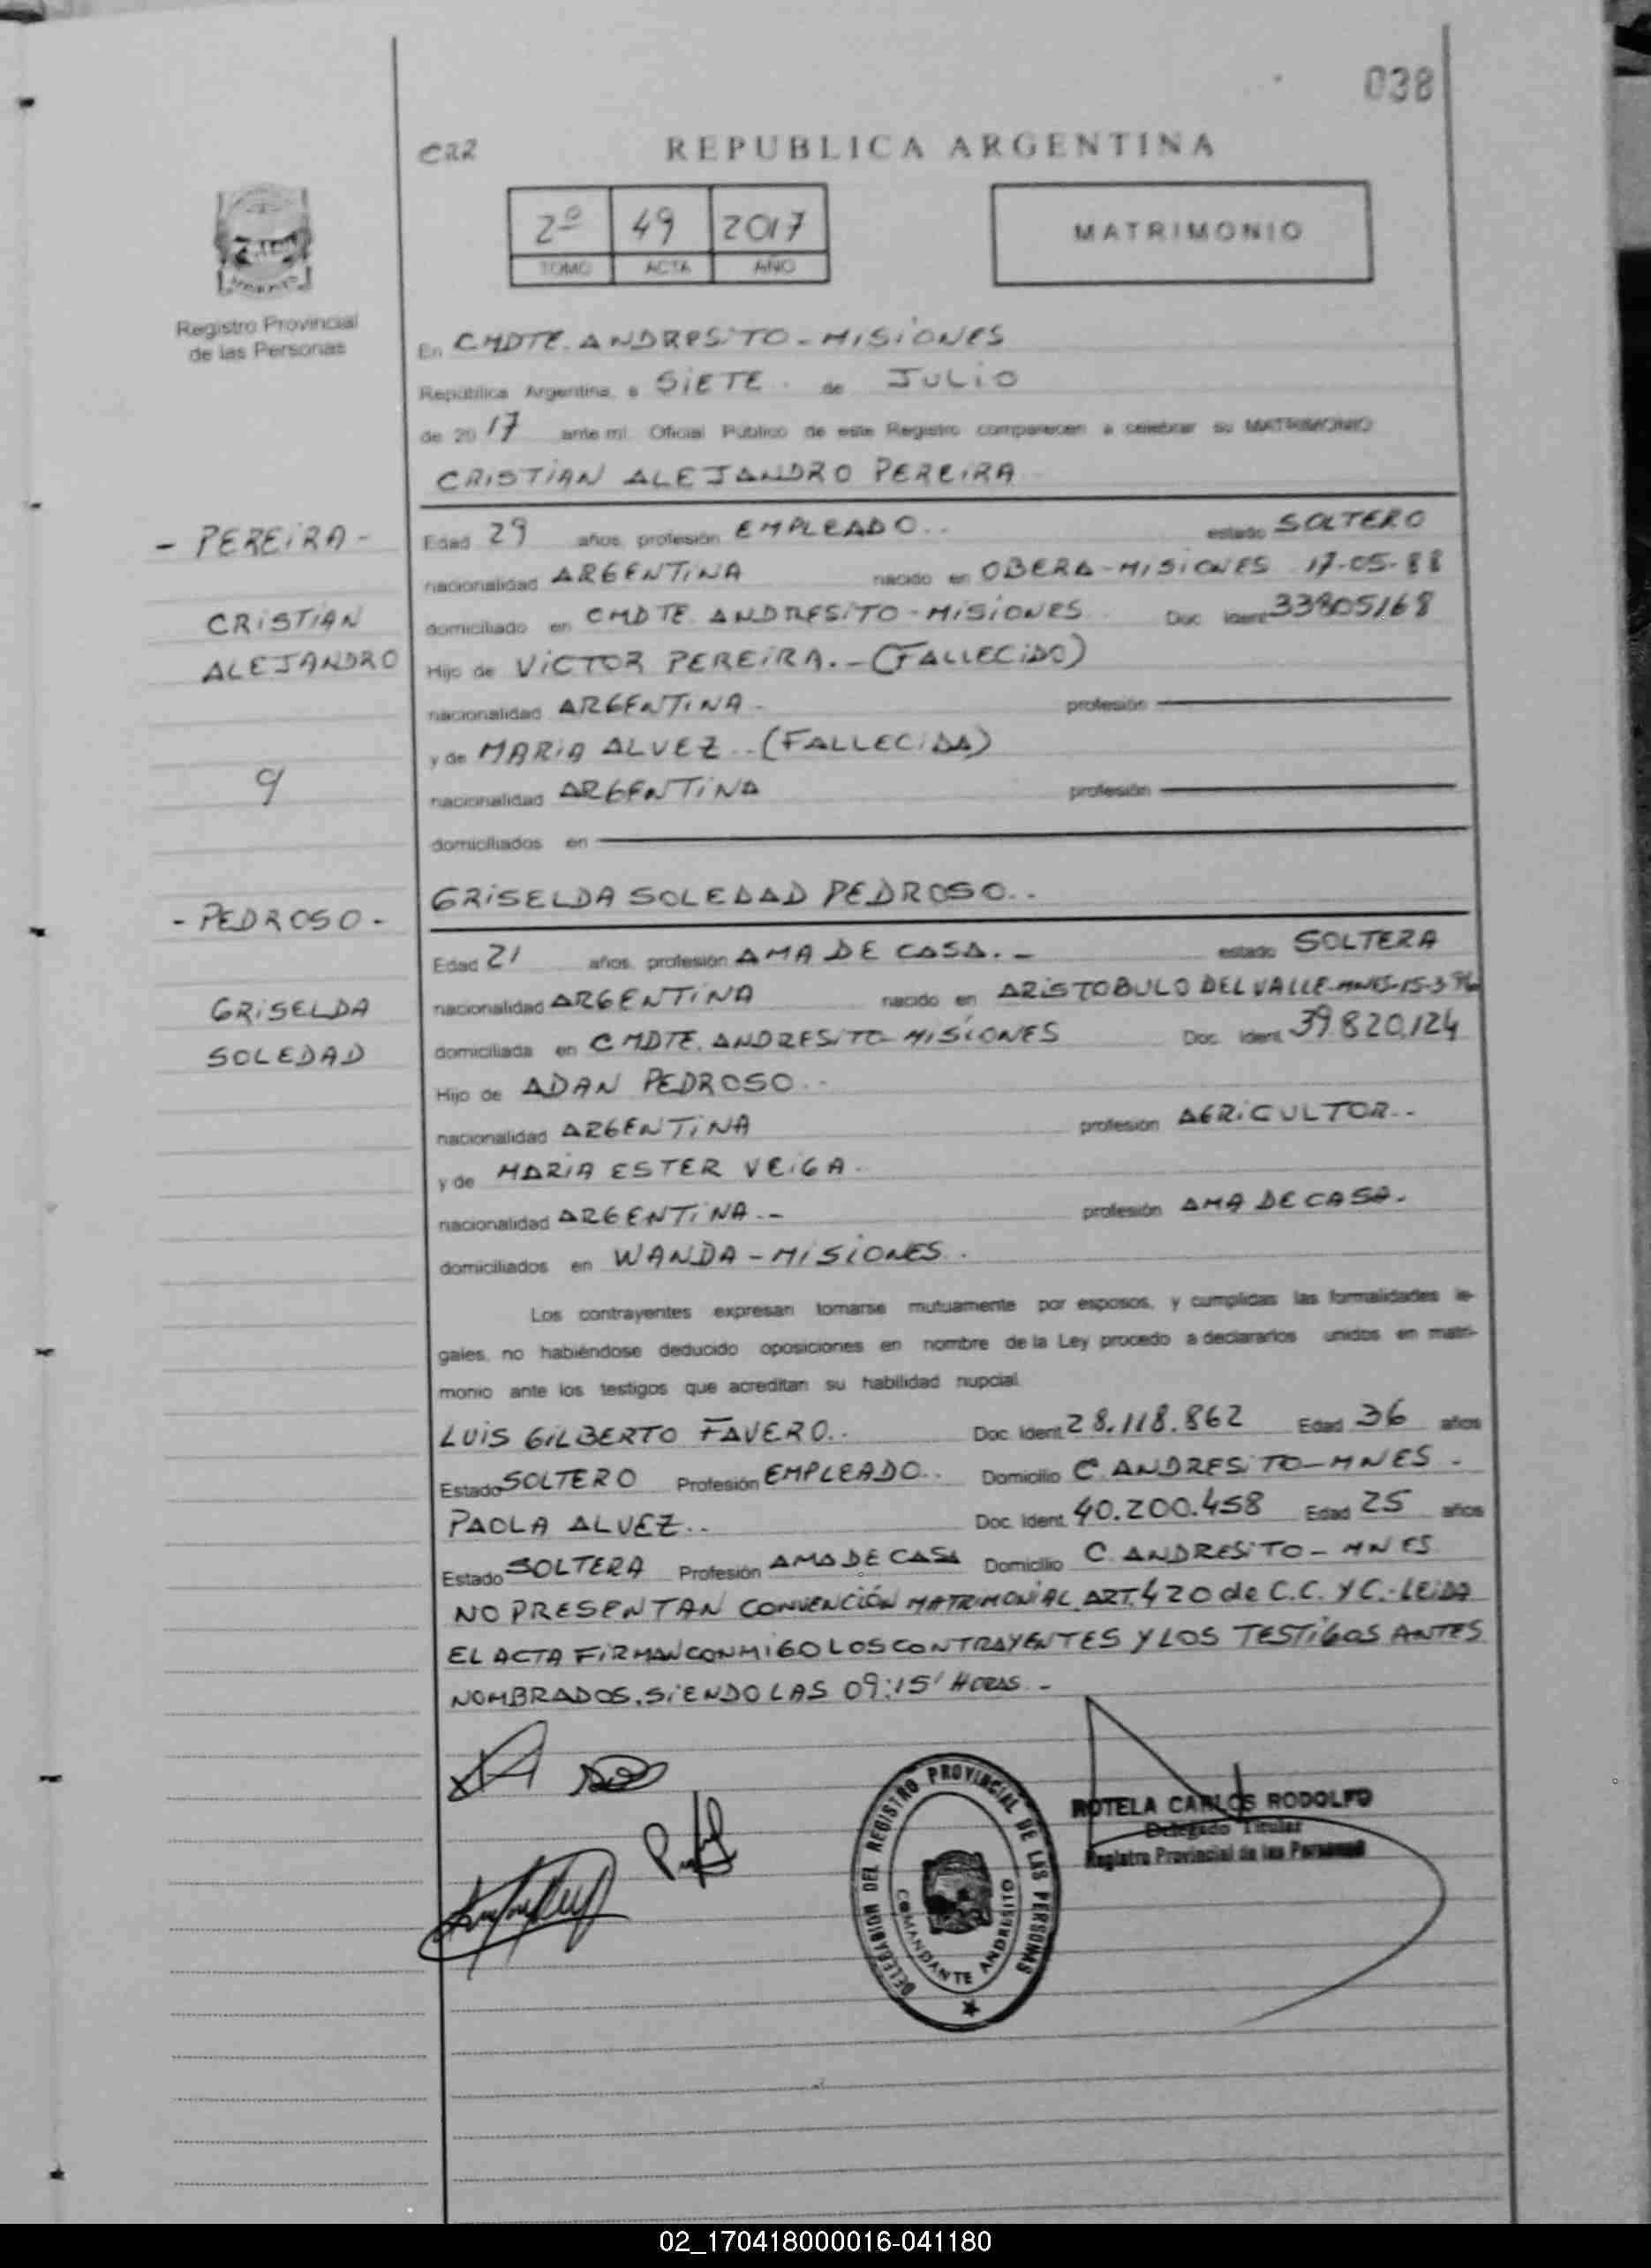 038
REPUBLICA ARGENTINA
2º 49 2017
TOMO ACTA AÑO
MATRIMONIO
Registro Provincial
de las Personas
En CMDTE. ANDRESITO - MISIONES
República Argentina, a SIETE de JULIO
de 2017 ante mi. Oficial Público de este Registro comparecen a celebrar su MATRIMONIO
CRISTIAN ALEJANDRO PEREIRA
- PEREIRA -
CRISTIAN
ALEJANDRO
Edad 29 años, profesión EMPLEADO.. estado SOLTERO
nacionalidad ARGENTINA nacido en OBERA-MISIONES 17-05-88
domiciliado en CMDTE. ANDRESITO-MISIONES Doc. Ident.
Hijo de VICTOR PEREIRA.-(FALLECIDO)
nacionalidad ARGENTINA- profesión
y de MARIA ALVEZ..(FALLECIDA)
nacionalidad ARGENTINA profesión
domiciliados en
GRISELDA SOLEDAD PEDROSO..
- PEDROSO -
GRISELDA
SOLEDAD
Edad 21 años, profesión AMA DE CASA.- estado SOLTERA
nacionalidad ARGENTINA nacido en ARISTOBULO DEL VALLE-MNES-15-3-96
domiciliada en CMDTE. ANDRESITO-MISIONES Doc. Ident. 39.820.124
Hijo de ADAN PEDROSO..
nacionalidad ARGENTINA profesión AGRICULTOR..
y de MARIA ESTER VEIGA.
nacionalidad ARGENTINA.- profesión AMA DE CASA.
domiciliados en WANDA-MISIONES.
Los contrayentes expresan tomarse mutuamente por esposos, y cumplidas las formalidades le-
gales, no habiéndose deducido oposiciones en nombre de la Ley procedo a declararlos unidos en matri-
monio ante los testigos que acreditan su habilidad nupcial
LUIS GILBERTO FAVERO.. Doc. Ident. 28.118.862 Edad 36 años
Estado SOLTERO Profesión EMPLEADO.. Domicilio C. ANDRESITO-MNES.
PAOLA ALVEZ.. Doc. Ident. 40.200.458 Edad 25 años
Estado SOLTERA Profesión AMA DE CASA Domicilio C. ANDRESITO-MNES
NO PRESENTAN CONVENCIÓN MATRIMONIAL ART. 420 de C.C. Y C.-LEIDA
EL ACTA FIRMAN CONMIGO LOS CONTRAYENTES Y LOS TESTIGOS ANTES
NOMBRADOS, SIENDO LAS 09:15' HORAS.-
DELEGACION DEL REGISTRO PROVINCIAL DE LAS PERSONAS
COMANDANTE ANDRESITO
ROTELA CARLOS RODOLFO
Delegado Titular
Registro Provincial de las Personas
02_170418000016-041180